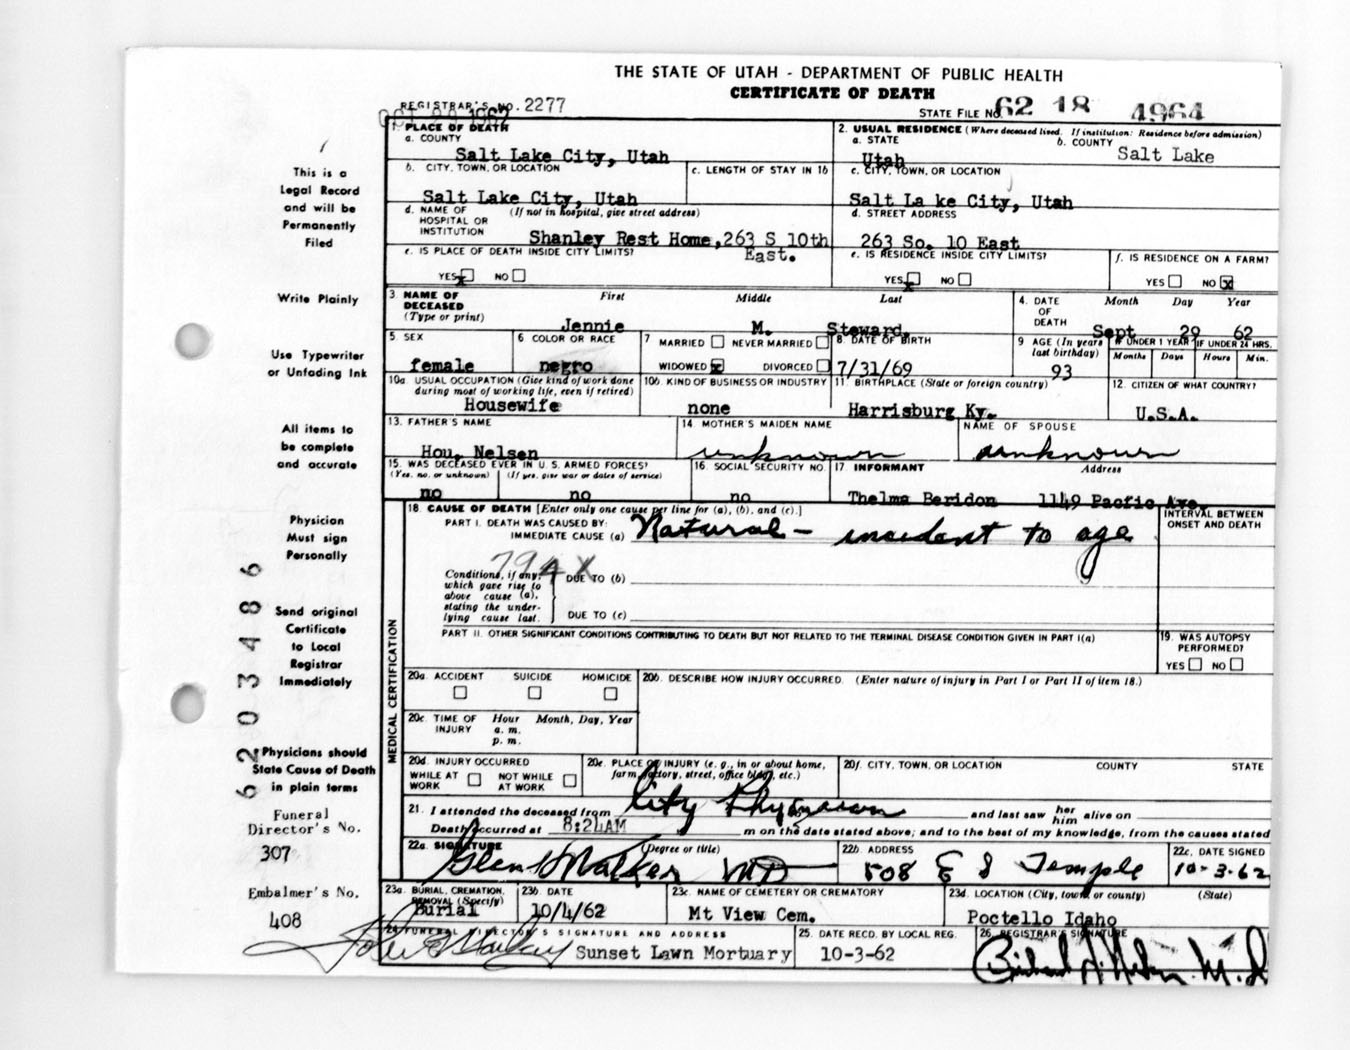 THE STATE OF UTAH - DEPARTMENT OF PUBLIC HEALTH
CERTIFICATE OF DEATH
REGISTRAR'S NO. 2277
STATE FILE NO. 62 18 4964
1. PLACE OF DEATH
a. COUNTY
Salt Lake City, Utah
2. USUAL RESIDENCE (Where deceased lived. If institution: Residence before admission)
a. STATE
Utah
b. COUNTY
Salt Lake
b. CITY, TOWN, OR LOCATION
Salt Lake City, Utah
c. LENGTH OF STAY IN 1b
c. CITY, TOWN, OR LOCATION
Salt La ke City, Utah
d. NAME OF HOSPITAL OR INSTITUTION
(If not in hospital, give street address)
Shanley Rest Home, 263 S 10th
East.
d. STREET ADDRESS
263 So. 10 East
e. IS PLACE OF DEATH INSIDE CITY LIMITS?
YES x NO
e. IS RESIDENCE INSIDE CITY LIMITS?
YES x NO
f. IS RESIDENCE ON A FARM?
YES NO x
3. NAME OF DECEASED
(Type or print)
First Middle Last
Jennie M. Steward,
4. DATE OF DEATH
Month Day Year
Sept 29 62
5. SEX
female
6. COLOR OR RACE
negro
7. MARRIED NEVER MARRIED
WIDOWED x DIVORCED
8. DATE OF BIRTH
7/31/69
9. AGE (In years last birthday)
93
IF UNDER 1 YEAR
Months Days
IF UNDER 24 HRS.
Hours Min.
10a. USUAL OCCUPATION (Give kind of work done during most of working life, even if retired)
Housewife
10b. KIND OF BUSINESS OR INDUSTRY
none
11. BIRTHPLACE (State or foreign country)
Harrisburg Ky.
12. CITIZEN OF WHAT COUNTRY?
U.S.A.
13. FATHER'S NAME
Hou. Nelsen
14. MOTHER'S MAIDEN NAME
unknown
NAME OF SPOUSE
unknown
15. WAS DECEASED EVER IN U. S. ARMED FORCES?
(Yes, no, or unknown) (If yes, give war or dates of service)
no no
16. SOCIAL SECURITY NO.
no
17. INFORMANT Address
Thelma Beridon 1149 Pacfic Ave.
18. CAUSE OF DEATH [Enter only one cause per line for (a), (b), and (c).]
PART I. DEATH WAS CAUSED BY:
IMMEDIATE CAUSE (a) Natural - incident to age
INTERVAL BETWEEN ONSET AND DEATH
Conditions, if any, which gave rise to above cause (a), stating the underlying cause last.
DUE TO (b)
DUE TO (c)
PART II. OTHER SIGNIFICANT CONDITIONS CONTRIBUTING TO DEATH BUT NOT RELATED TO THE TERMINAL DISEASE CONDITION GIVEN IN PART I(a)
19. WAS AUTOPSY PERFORMED?
YES NO
MEDICAL CERTIFICATION
20a. ACCIDENT SUICIDE HOMICIDE
20b. DESCRIBE HOW INJURY OCCURRED. (Enter nature of injury in Part I or Part II of item 18.)
20c. TIME OF INJURY
Hour Month, Day, Year
a. m.
p. m.
20d. INJURY OCCURRED
WHILE AT WORK NOT WHILE AT WORK
20e. PLACE OF INJURY (e. g., in or about home, farm, factory, street, office bldg., etc.)
20f. CITY, TOWN, OR LOCATION COUNTY STATE
21. I attended the deceased from City Physician and last saw her him alive on
Death occurred at 8:20AM m on the date stated above; and to the best of my knowledge, from the causes stated
22a. SIGNATURE (Degree or title)
Glen H Walker MD
22b. ADDRESS
508 E S Temple
22c. DATE SIGNED
10-3-62
23a. BURIAL, CREMATION, REMOVAL (Specify)
Burial
23b. DATE
10/4/62
23c. NAME OF CEMETERY OR CREMATORY
Mt View Cem.
23d. LOCATION (City, town, or county) (State)
Poctello Idaho
24. FUNERAL DIRECTOR'S SIGNATURE AND ADDRESS
Sunset Lawn Mortuary
25. DATE RECD. BY LOCAL REG.
10-3-62
26. REGISTRAR'S SIGNATURE
M.D
This is a
Legal Record
and will be
Permanently
Filed
Write Plainly
Use Typewriter
or Unfading Ink
All items to
be complete
and accurate
Physician
Must sign
Personally
Send original
Certificate
to Local
Registrar
Immediately
Physicians should
State Cause of Death
in plain terms
Funeral
Director's No.
307
Embalmer's No.
408
6203486